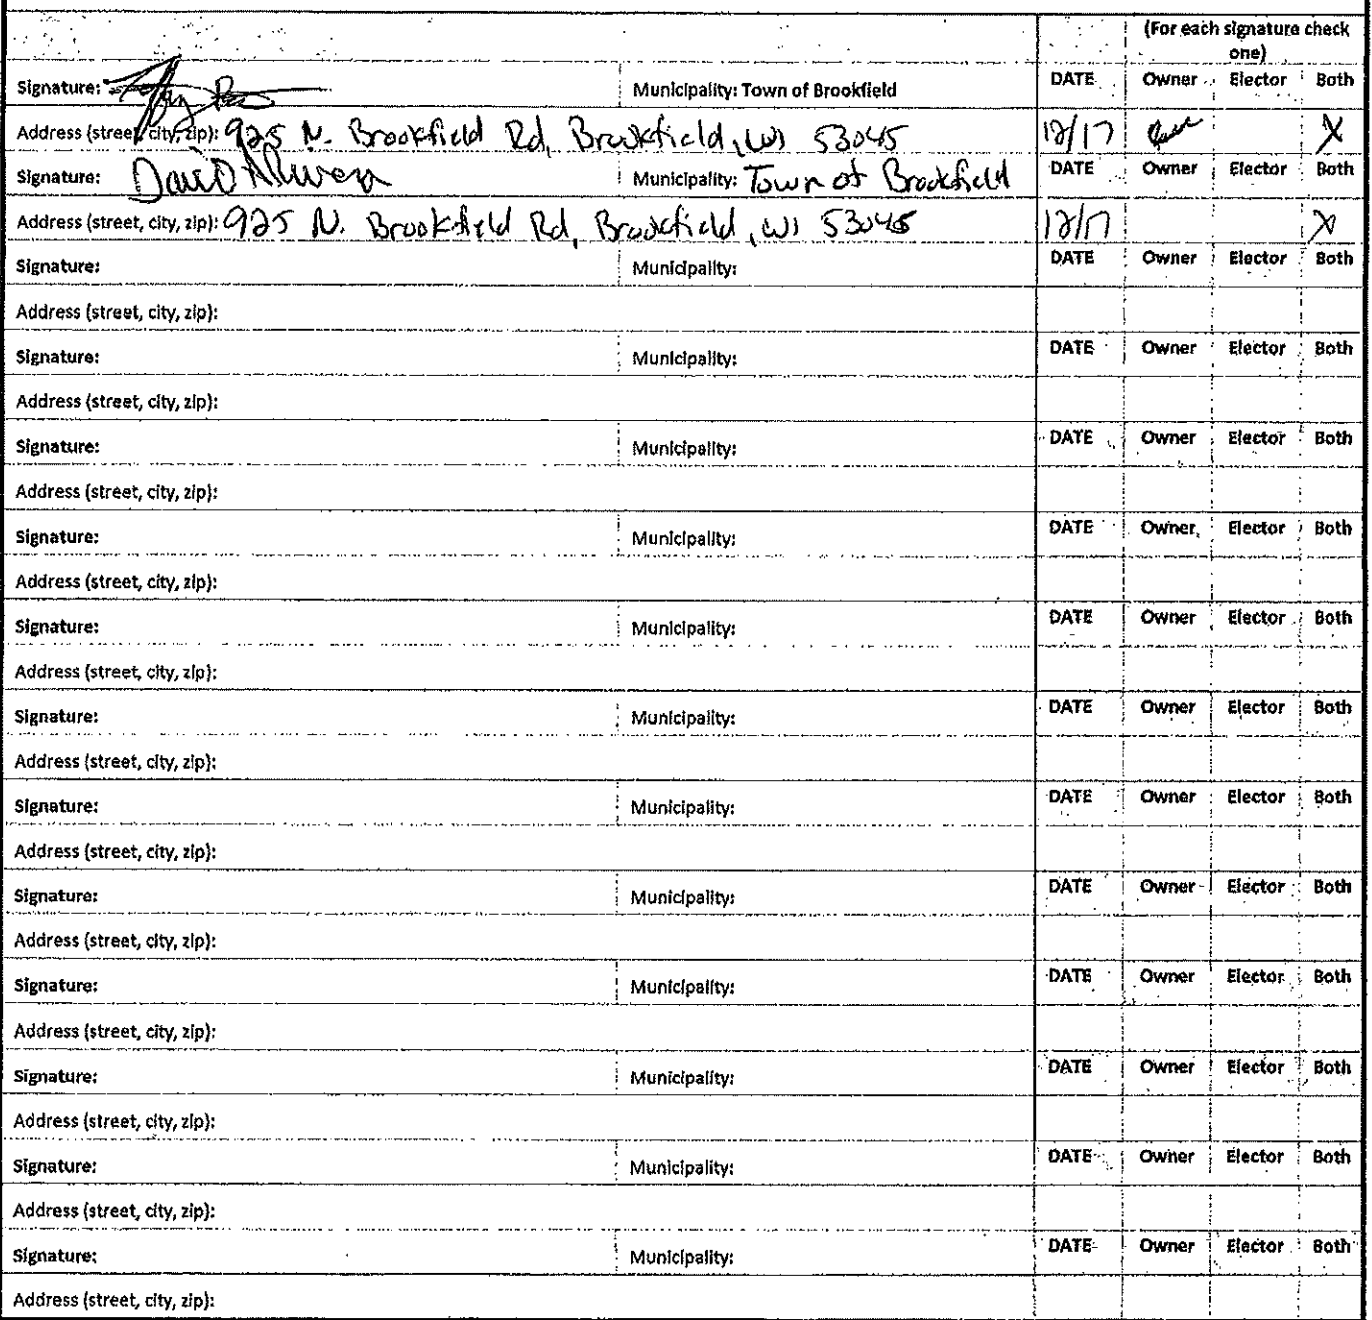 (For each signature check one)
Signature: Municipality: Town of Brookfield DATE Owner Elector Both
Address (street, city, zip): 925 N. Brookfield Rd, Brookfield, WI 53045 12/17 X
Signature: David Municipality: Town of Brookfield DATE Owner Elector Both
Address (street, city, zip): 925 N. Brookfield Rd, Brookfield, WI 53045 12/17 X
Signature: Municipality: DATE Owner Elector Both
Address (street, city, zip):
Signature: Municipality: DATE Owner Elector Both
Address (street, city, zip):
Signature: Municipality: DATE Owner Elector Both
Address (street, city, zip):
Signature: Municipality: DATE Owner Elector Both
Address (street, city, zip):
Signature: Municipality: DATE Owner Elector Both
Address (street, city, zip):
Signature: Municipality: DATE Owner Elector Both
Address (street, city, zip):
Signature: Municipality: DATE Owner Elector Both
Address (street, city, zip):
Signature: Municipality: DATE Owner Elector Both
Address (street, city, zip):
Signature: Municipality: DATE Owner Elector Both
Address (street, city, zip):
Signature: Municipality: DATE Owner Elector Both
Address (street, city, zip):
Signature: Municipality: DATE Owner Elector Both
Address (street, city, zip):
Signature: Municipality: DATE Owner Elector Both
Address (street, city, zip):